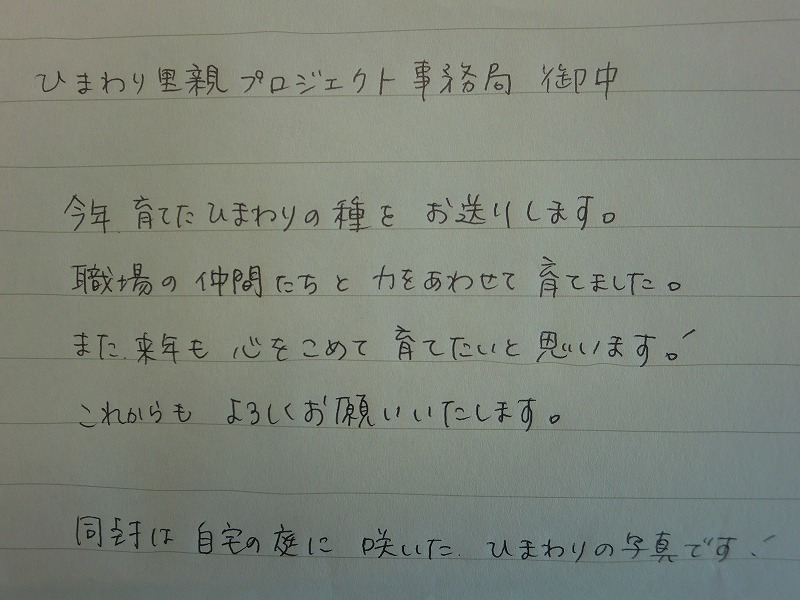 ひまわり里親プロジェクト事務局 御中
今年 育てたひまわりの種を お送りします。
職場の仲間たちと 力をあわせて 育てました。
また来年も 心をこめて 育てたいと思います。
これからも よろしくお願いいたします。
同封は 自宅の庭に 咲いた ひまわりの写真です。